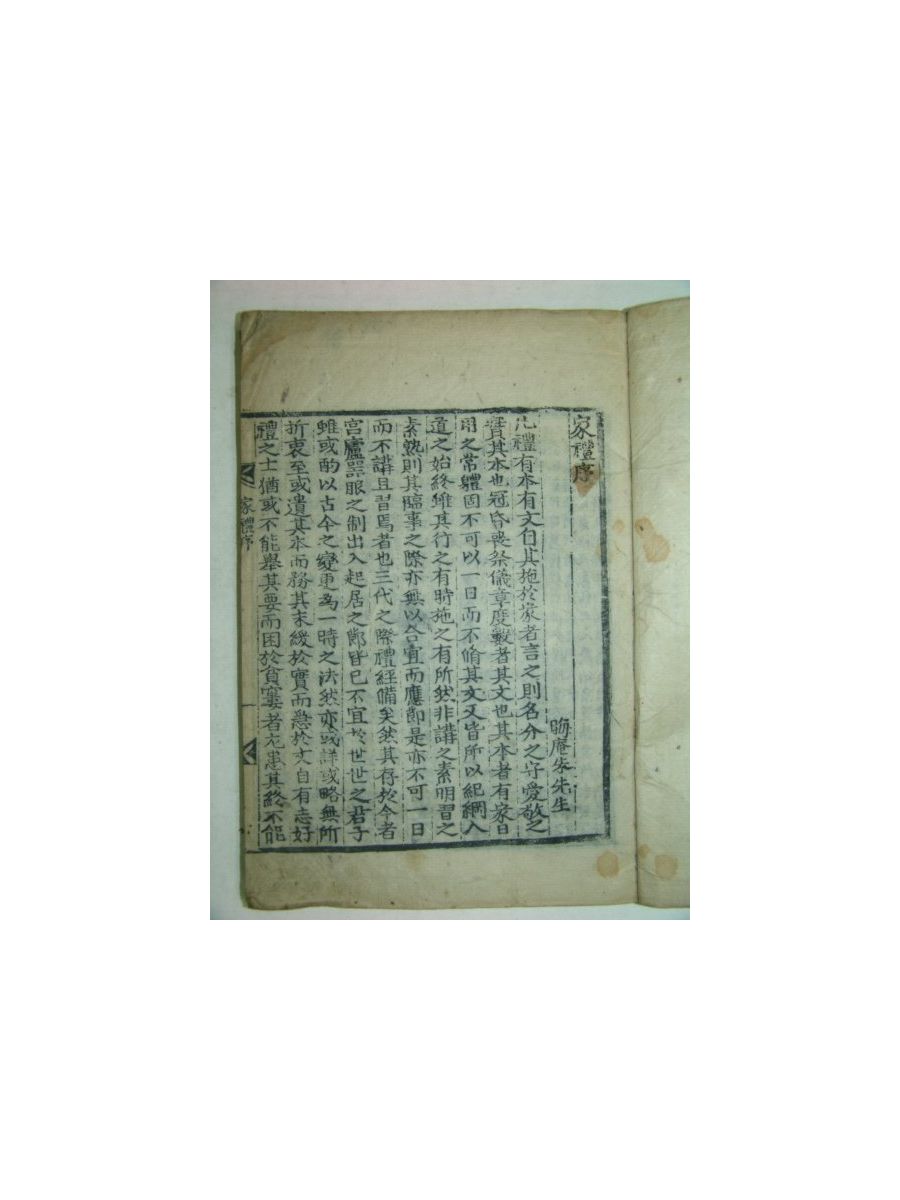 家禮序
晦庵朱先生
凡禮有本有文自其施於家者言之則名分之守愛敬之
實其本也冠昏喪祭儀章度數者其文也其本者有家日
用之常軆固不可以一日而不脩其文又皆所以紀綱人
道之始終雖其行之有時施之有所然非講之素明習之
素熟則其臨事之際亦無以合宜而應節是亦不可一日
而不講且習焉者也三代之際禮經備矣然其存於今者
宮廬器服之制出入起居之節皆已不宜於世世之君子
雖或酌以古今之變更爲一時之法然亦或詳或略無所
折衷至或遺其本而務其末緩於實而急於文自有志好
禮之士猶或不能舉其要而困於貧窶者尤患其終不能
家禮序